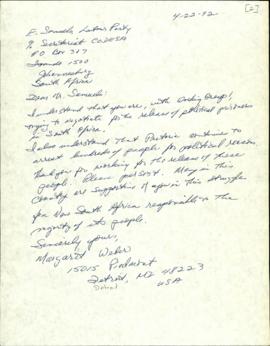 [2]
4-23-92
E. Samuels Labour Party
% Secretariat CODESA
PO Box 307
Isando 1500
Johannesburg
South Africa
Dear Mr. Samuels:
I understand that you are, with Working Group I,
trying to negotiate for the release of political prisoners
in South Africa.
I also understand that Pretoria continues to
arrest hundreds of people for political reasons.
Thank you for working for the release of these
people. Please persist. Many in this
country are supportive of you in this struggle
for a South Africa responsible to the
majority of its people.
Sincerely yours,
Margaret Weber
15015 Piedmont
Detroit, MI 48223
(Detroit)
USA